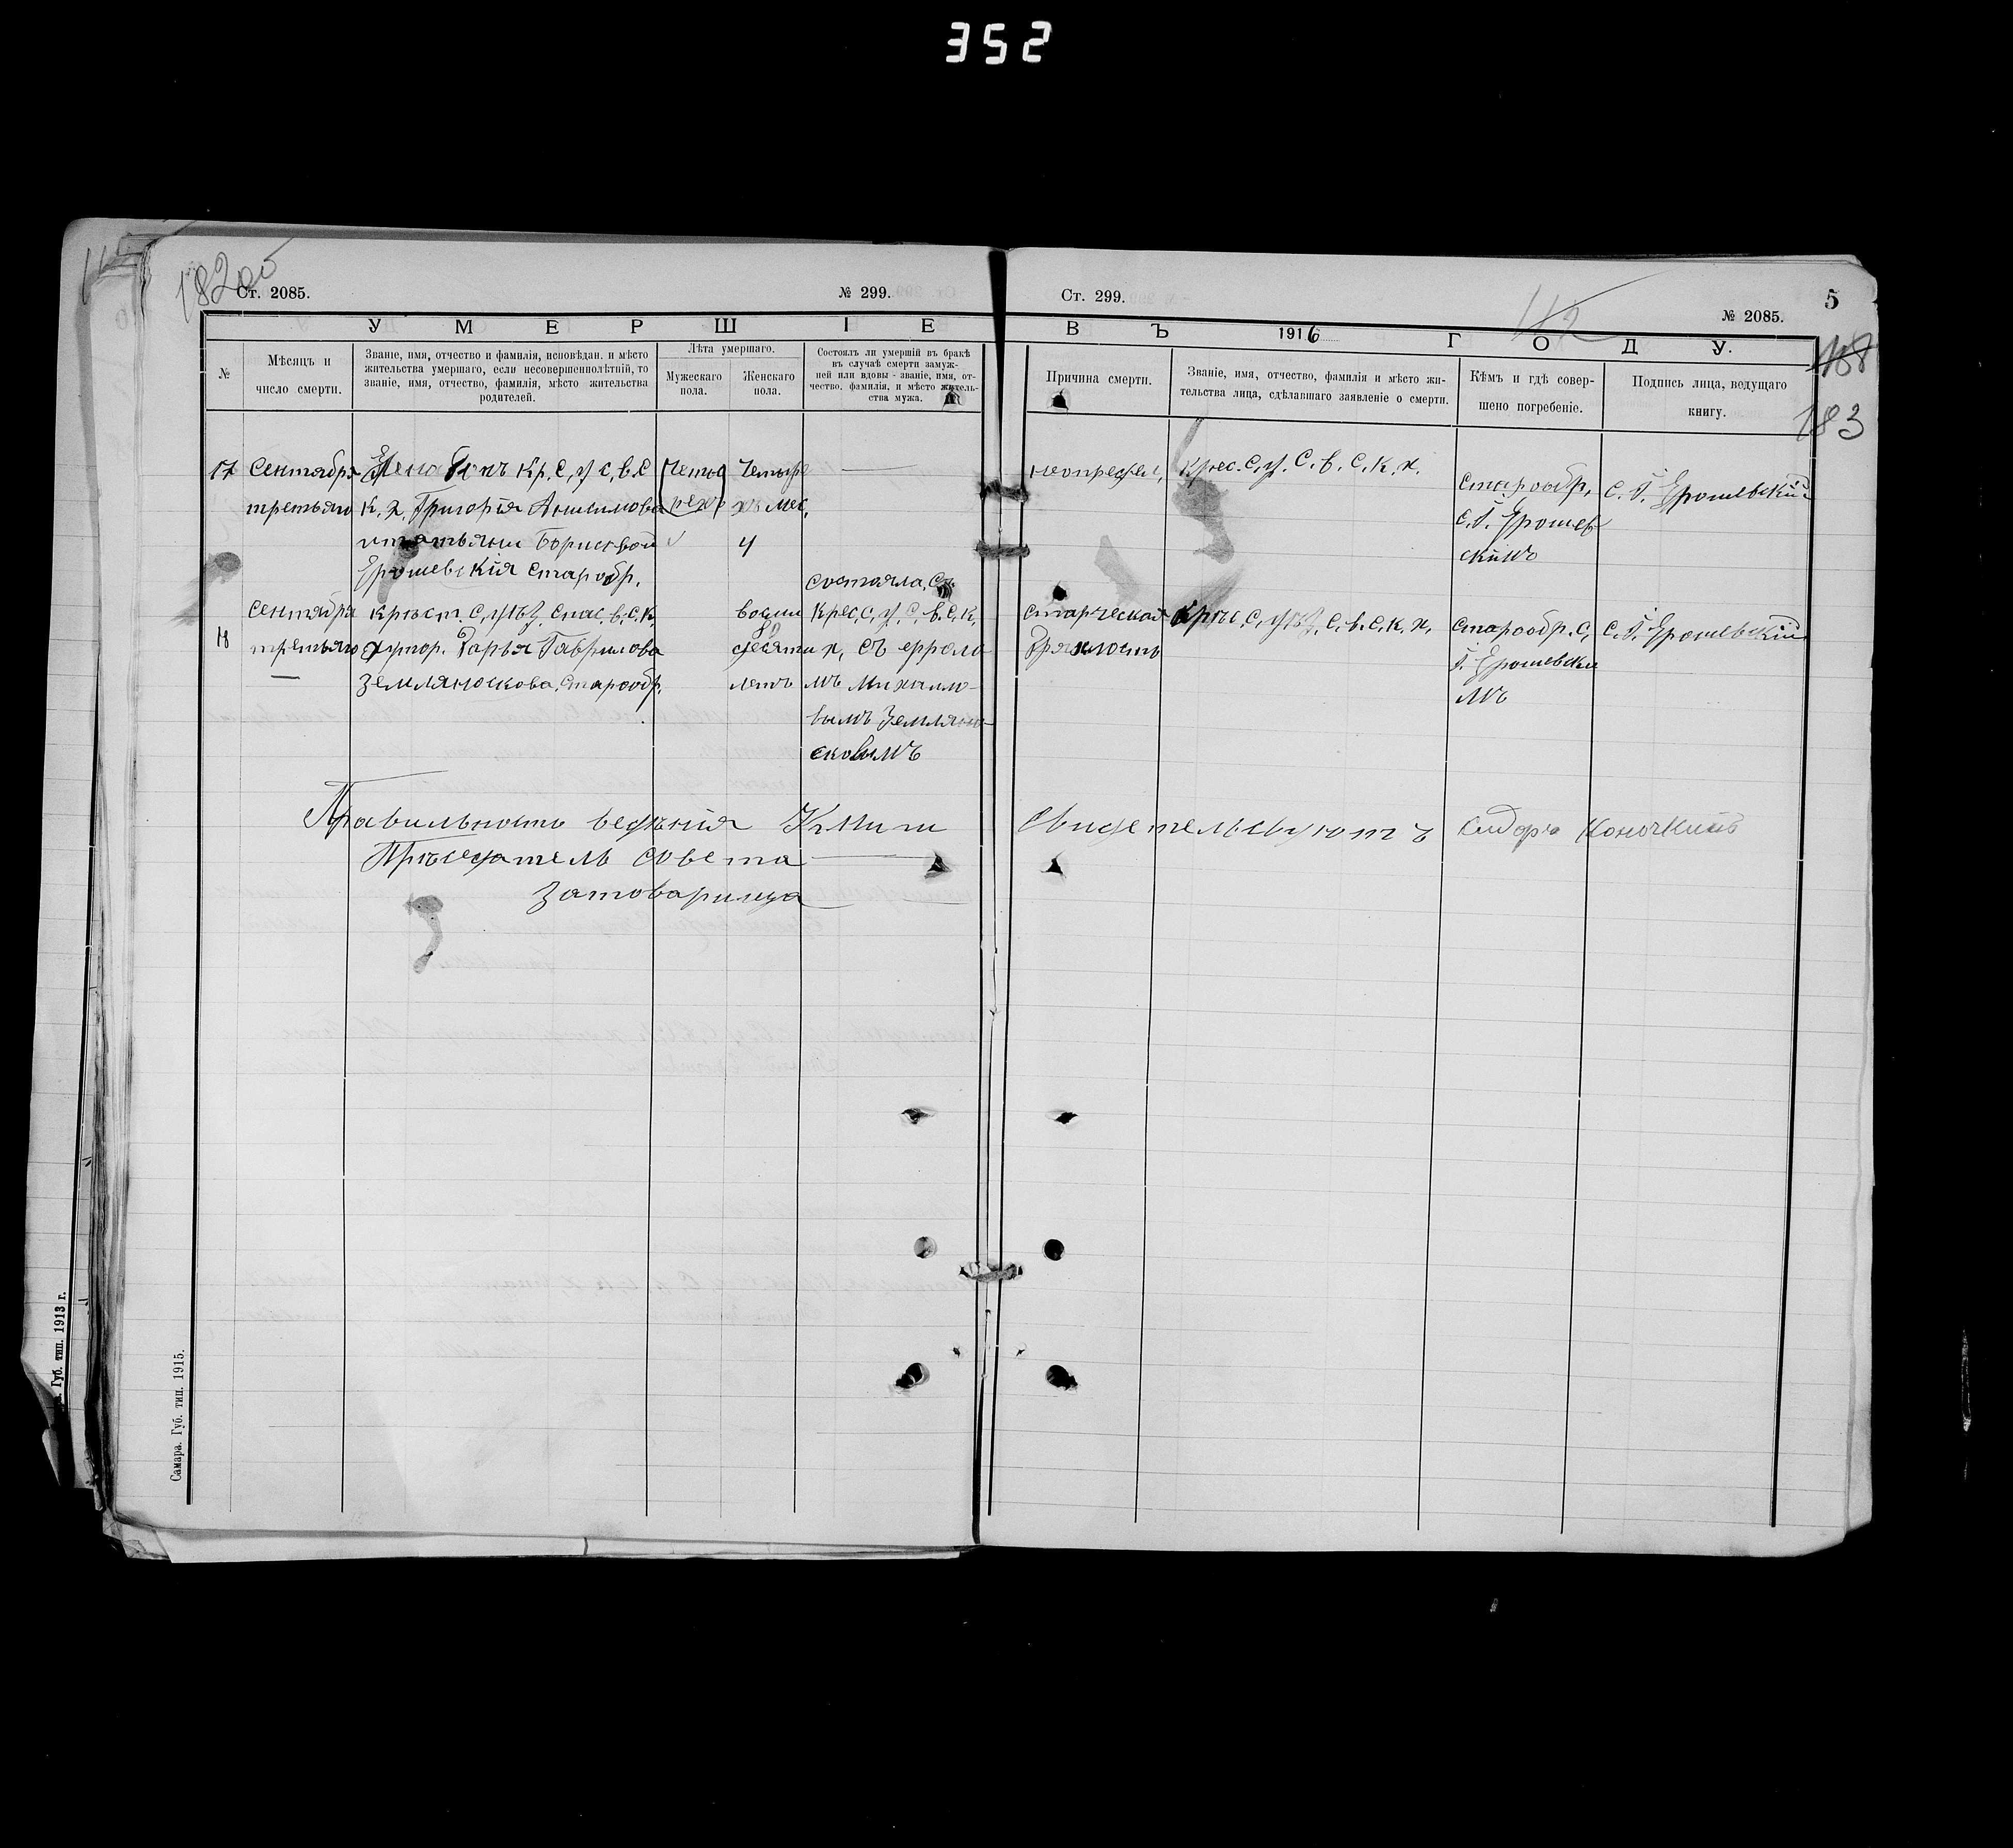 352
18200
Ст. 2085.
№ 299.
Ст. 299.
5
№ 2085.
112
У М Е Р Ш І Е
В Ъ 1916 Г О Д У.
168
183
№
Мѣсяцъ и
число смерти.
Званіе, имя, отчество и фамилія, исповѣдан. и мѣсто
жительства умершаго, если несовершеннолѣтній, то
званіе, имя, отчество, фамилія, мѣсто жительства
родителей.
Лѣта умершаго.
Мужескаго
пола.
Женскаго
пола.
Состоялъ ли умершій въ бракѣ
въ случаѣ смерти замуж-
ней или вдовы - званіе, имя, от-
чество. фамилія, и мѣсто житель-
ства мужа.
Причина смерти.
Званіе, имя, отчество, фамилія и мѣсто жи-
тельства лица, сдѣлавшаго заявленіе о смерти.
Кѣмъ и гдѣ совер-
шено погребеніе.
Подпись лица, ведущаго
книгу.
17
Сентября
третьяго
Кр. С, у с, в. с
К. х. Григорія Анисимова
Борисовой
Ерошевскія старобр.
Четыре
хъ мес,
4
Крес. с, у. С. в. С. К. х.
Старообр,
С. Г. Ерошев
скимъ
С. Г. Ерошевскій
18
Сентября
третьяго
Кръст. С, у Спас, в. с. К.
хутор. Дарья Гаврилова
Земляноскова, старообр.
восми
80
десяти
летъ
состояла, съ
Крес, с, у, С, в. с, К,
х, съ ерроло
мъ Михаило-
вымъ Земляно-
сковымъ
старческая
дряхлость
Кръс, с, у С, в. с, К, х,
старообр. с,
Г. Ерошевски
мъ
С. Г. Ерошевскій
Правильность ведѣнія Книги свидетельствуютъ Сидоръ
Пръседатель совета
затоварища
Самара. Губ. тип. 1915.
Губ. тип. 1913 г.